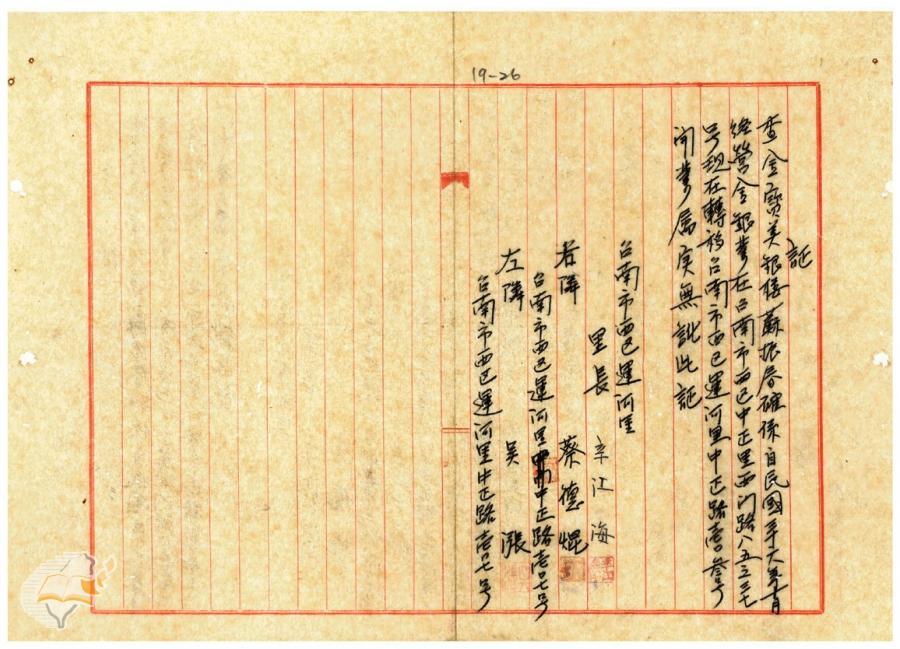 19-26
証
查金寶美銀樓蘇振春確係自民國年六年十月
經營金銀業在台南市西区中正里西门路八五三三七
号現在轉移台南市西区運河里中正路壱参号
開業属実無訛此証
台南市西区運河里
里長 辛江海
右隣 蔡德焜
台南市西区運河里中正路壱七号
左隣 吳漲
台南市西区運河里中正路壱七号